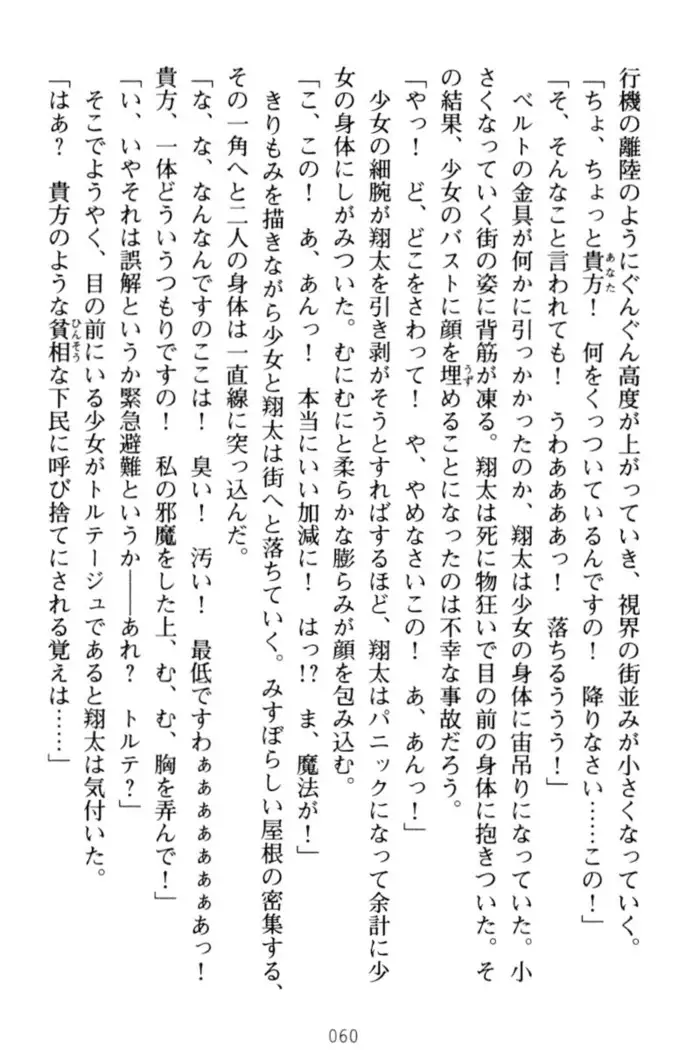 行機の離陸のようにぐんぐん高度が上がっていき、視界の街並みが小さくなっていく。
「ちょ、ちょっと貴方！　何をくっついているんですの！　降りなさい……この！」
「そ、そんなこと言われても！　うわああああっ！　落ちるううう！」
　ベルトの金具が何かに引っかかったのか、翔太は少女の身体に宙吊りになっていた。小
さくなっていく街の姿に背筋が凍る。翔太は死に物狂いで目の前の身体に抱きついた。そ
の結果、少女のバストに顔を埋めることになったのは不幸な事故だろう。
「やっ！　ど、どこをさわって！　や、やめなさいこの！　あ、あんっ！」
　少女の細腕が翔太を引き剥がそうとすればするほど、翔太はパニックになって余計に少
女の身体にしがみついた。むにむにと柔らかな膨らみが顔を包み込む。
「こ、この！　あ、あんっ！　本当にいい加減に！　はっ!?　ま、魔法が！」
　きりもみを描きながら少女と翔太は街へと落ちていく。みすぼらしい屋根の密集する、
その一角へと二人の身体は一直線に突っ込んだ。
「な、な、なんなんですのここは！　臭い！　汚い！　最低ですわぁぁぁぁぁぁぁあっ！
貴方、一体どういうつもりですの！　私の邪魔をした上、む、む、胸を弄んで！」
「い、いやそれは誤解というか緊急避難というか――あれ？　トルテ？」
　そこでようやく、目の前にいる少女がトルテージュであると翔太は気付いた。
「はあ？　貴方のような貧相な下民に呼び捨てにされる覚えは……」
060